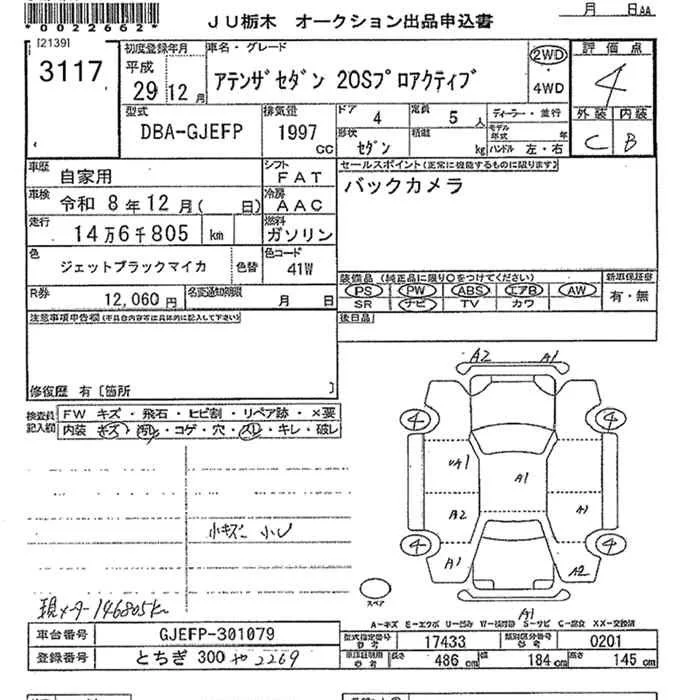 *0022662*
月 日AA
JU栃木 オークション出品申込書
[2139]
3117
初度登録年月
平成
29 12月
車名・グレード
アテンザセダン 20Sプロアクティブ
2WD
4WD
評価点
4
外装 内装
C B
型式
DBA-GJEFP
排気量
1997 cc
ドア 4
定員 5人
ディーラー・並行
形状 セダン
積載 kg
モデル年式 年
ハンドル 左・右
車歴
自家用
シフト
FAT
車検
令和 8年12月( 日)
冷房
AAC
走行
14万6千805 km
燃料
ガソリン
色
ジェットブラックマイカ
色替
色コード
41W
R券
12,060円
名変通知期限
月 日
セールスポイント(正常に機能するものに限ります)
バックカメラ
装備品 (純正品に限り○をつけてください)
新車保証書
PS PW ABS エアB AW
有・無
SR ナビ TV カワ
後日品
注意事項申告欄(不具合内容等は具体的に記入して下さい)
修復歴 有〔箇所 〕
検査員記入欄
FW キズ・飛石・ヒビ割・リペア跡・×要
内装 キズ・汚れ・コゲ・穴・スレ・キレ・破レ
小キズ 小U
現メーター146805km
A2 A1
4 4
A1 A1
A2 A1
4 4
A1 A2
スペア
A1
A-キズ E-エクボ U-凹み W-補修跡 S-サビ C-腐食 XX-交換済
車台番号
GJEFP-301079
登録番号
とちぎ 300 や 2269
型式指定番号 参考
17433
類別区分番号 参考
0201
車庫証明用 参考
長さ 486 cm
幅 184 cm
高さ 145 cm